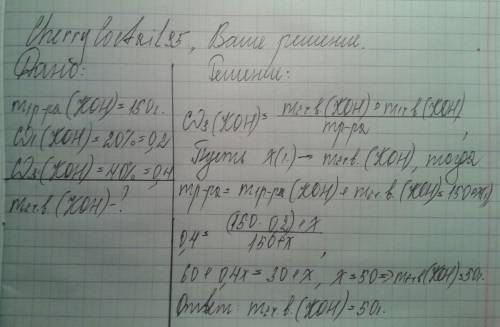 CherryCoctail95, Ваше решение.
Дано:
m₁р-ра (KOH) = 150г.
ω₁(KOH) = 20% = 0,2
ω₂(KOH) = 40% = 0,4
m₂т.в. (KOH) - ?
Решение:
ω₂(KOH) = (m₂т.в.(KOH) + m₁т.в.(KOH)) / mр-ра,
Пусть x(г.) – m₂т.в. (KOH), тогда
mр-ра = m₁р-ра (KOH) + m₂т.в. (KOH) = (150+x),
0,4 = ((150·0,2)+x) / (150+x),
60 + 0,4x = 30 + x, x = 50 => m₂т.в.(KOH) = 50г.
Ответ: m₂т.в. (KOH) = 50г.